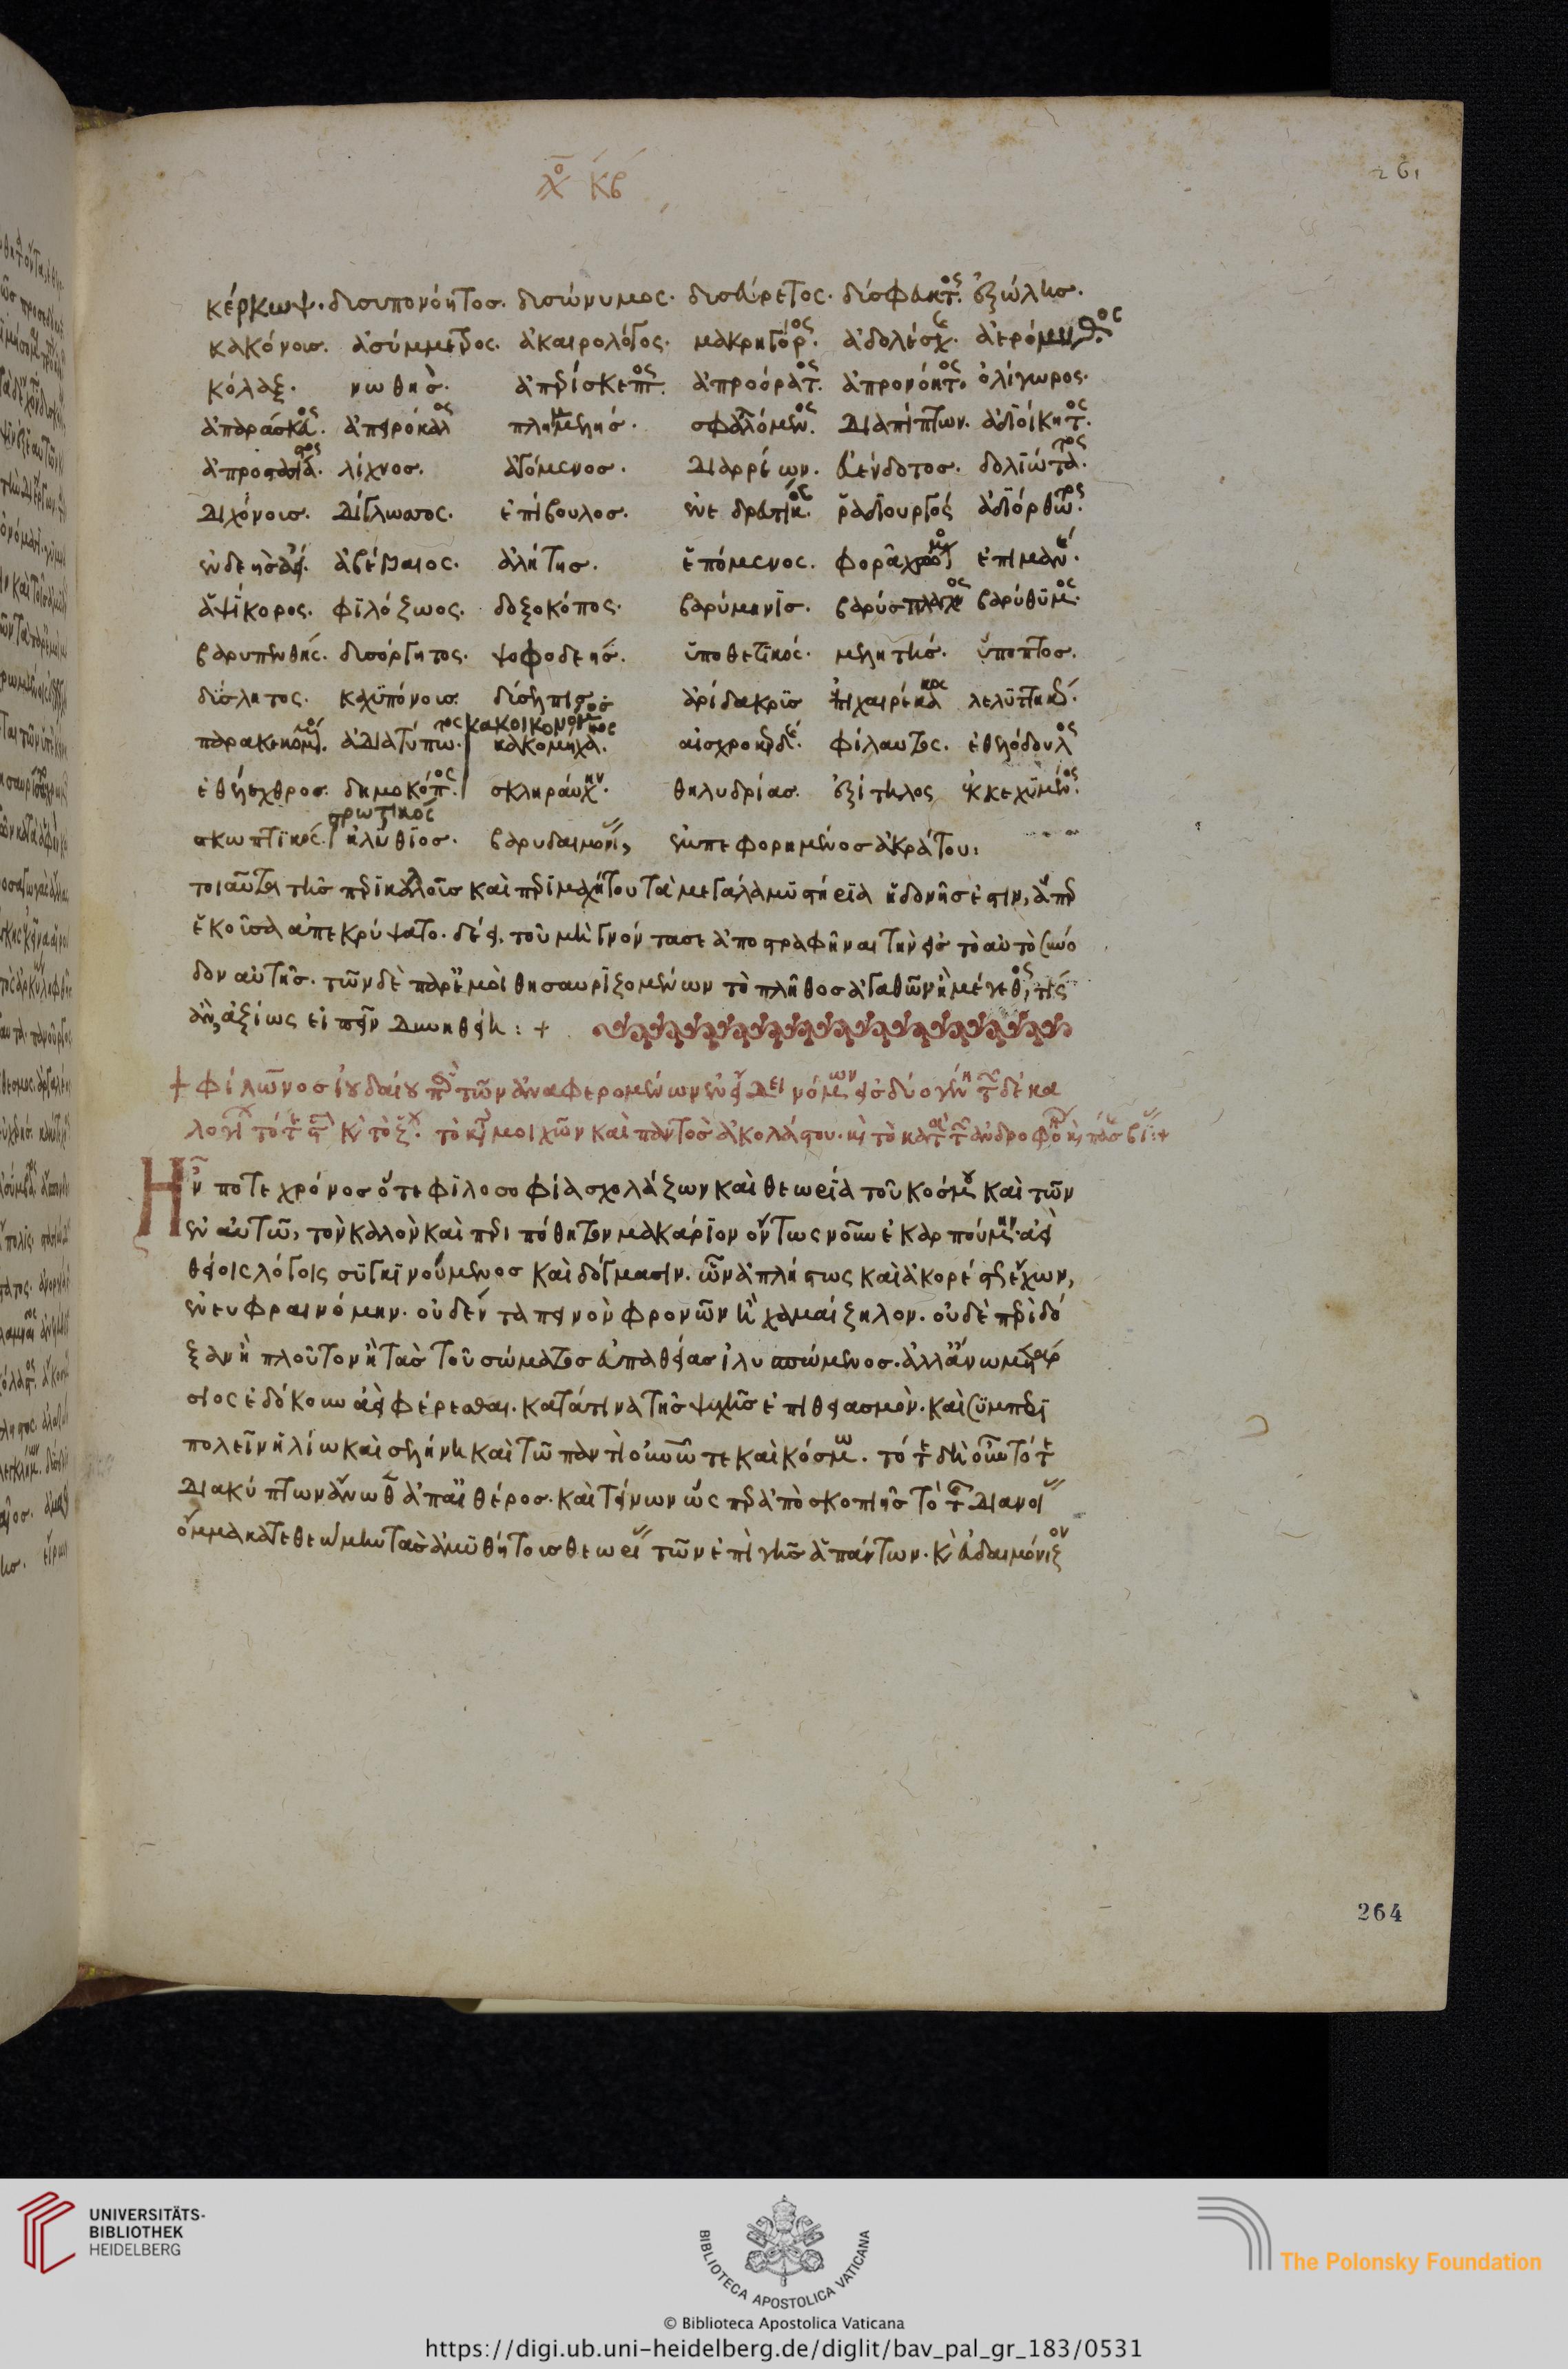 κβ
261
κέρκωψ. δυσυπονόητος. δυσώνυμος. δυσεύρετος. δύσφυκτος. ἐξώλης.
κακόνους. ἀσύμμετρος. ἀκαιρολόγος. μακρηγόρος. ἀδολέσχης.
κόλαξ. νωθής. ἀπερίσκεπτος. ἀπροόρατος. ἀπρονόητος. ὀλίγωρος.
ἀπαράσκευος. ἀπειρόκαλος πλημμελής. σφαλλόμενος. διαπίπτων. ἀδιοίκητος.
ἀπροστασίαστος. λίχνος. ἀγόμενος. διαρρέων. εὐένδοτος. δολιώτατος.
διχόνους. δίγλωσσος. ἐπίβουλος. ἐνεδρευτικός. ῥᾳδιουργός ἀδιόρθωτος.
ἐνδεής ἀεί. ἀβέβαιος. ἀλήτης. ἑπόμενος. ἐπιμανής.
ἁψίκορος. φιλόζωος. δοξοκόπος. βαρύμηνις. βαρύσπλαγχνος βαρύθυμος.
βαρυπενθής. δυσόργητος. ψοφοδεής. ὑπερθετικός. μελλητής. ὕποπτος.
δύσληπτος. καχυπόνους. δύσελπις. ἀρίδακρυς ἐπιχαιρέκακος λελυττηκώς.
ἀδιατύπωτος κακοικονόμος κακομήχανος. αἰσχροκερδής. φίλαυτος. ἐθελόδουλος
ἐθέλεχθρος. δημοκόπος. σκληραύχην. θηλυδρίας. ἐξίτηλος ἐκκεχυμένος.
ἐρωτικός
σκωπτικός. ἠλίθιος. βαρυδαιμονίας ἐμπεφορημένος ἀκράτου:
τοιαῦτα τῆς περικαλλοῦς καὶ περιμαχήτου τὰ μεγάλα μυστήρια ἡδονῆς ἐστιν, ἅπερ
ἑκοῦσα ἀπεκρύψατο. δέει. τοῦ μὴ γνόντα σε ἀποστραφῆναι τὴν εἰς τὸ αὐτὸ σύνο
δον αὐτῆς. τῶν δὲ παρ' ἐμοὶ θησαυριζομένων τὸ πλῆθος ἀγαθῶν ἢ μέγεθος, τίς
ἂν, ἀξίως εἰπεῖν δυνηθείη: +
+ φίλωνος ἰουδαίου περὶ τῶν ἀναφερομένων ἐν εἴδει νόμων εἰς δύο γένη τῶν δέκα
λογίων τό τε ϛ καὶ τὸ ζ. τὸ κατὰ μοιχῶν καὶ παντὸς ἀκολάστου. καὶ τὸ κατὰ τῶν ἀνδροφόνων καὶ πάσης βίας:+
Ἦν ποτε χρόνος ὅτε φιλοσοφίᾳ σχολάζων καὶ θεωρίᾳ τοῦ κόσμου καὶ τῶν
ἐν αὐτῷ, τὸν καλὸν καὶ περιπόθητον μακάριον ὄντως νοῦν ἐκαρπούμην. ἀεὶ
θείοις λόγοις συγγινόμενος καὶ δόγμασιν. ὧν ἀπλήστως καὶ ἀκορέστως ἔχων,
ἐνευφραινόμην. οὐδὲν ταπεινὸν φρονῶν ἢ χαμαίζηλον. οὐδὲ περὶ δό
ξαν ἢ πλοῦτον ἢ τὰς τοῦ σώματος εὐπαθείας ἰλυσπώμενος. ἀλλ' ἄνω μετάρ
σιος ἐδόκουν ἀεὶ φέρεσθαι. κατά τινα τῆς ψυχῆς ἐπιθειασμὸν. καὶ συμπερι
πολεῖν ἡλίῳ καὶ σελήνῃ καὶ τῷ παντὶ οὐρανῷ τε καὶ κόσμῳ. τότε δὴ οὖν τότε
διακύπτων ἄνωθεν ἀπ' αἰθέρος. καὶ τείνων ὥσπερ ἀπὸ σκοπιῆς τὸ τῆς διανοίας
ὄμμα κατεθεώμην τὰς ἀμυθήτους θεωρίας τῶν ἐπὶ γῆς ἁπάντων. καὶ εὐδαιμόνιζον
264
UNIVERSITÄTS-
BIBLIOTHEK
HEIDELBERG
BIBLIOTECA APOSTOLICA VATICANA
The Polonsky Foundation
© Biblioteca Apostolica Vaticana
https://digi.ub.uni-heidelberg.de/diglit/bav_pal_gr_183/0531